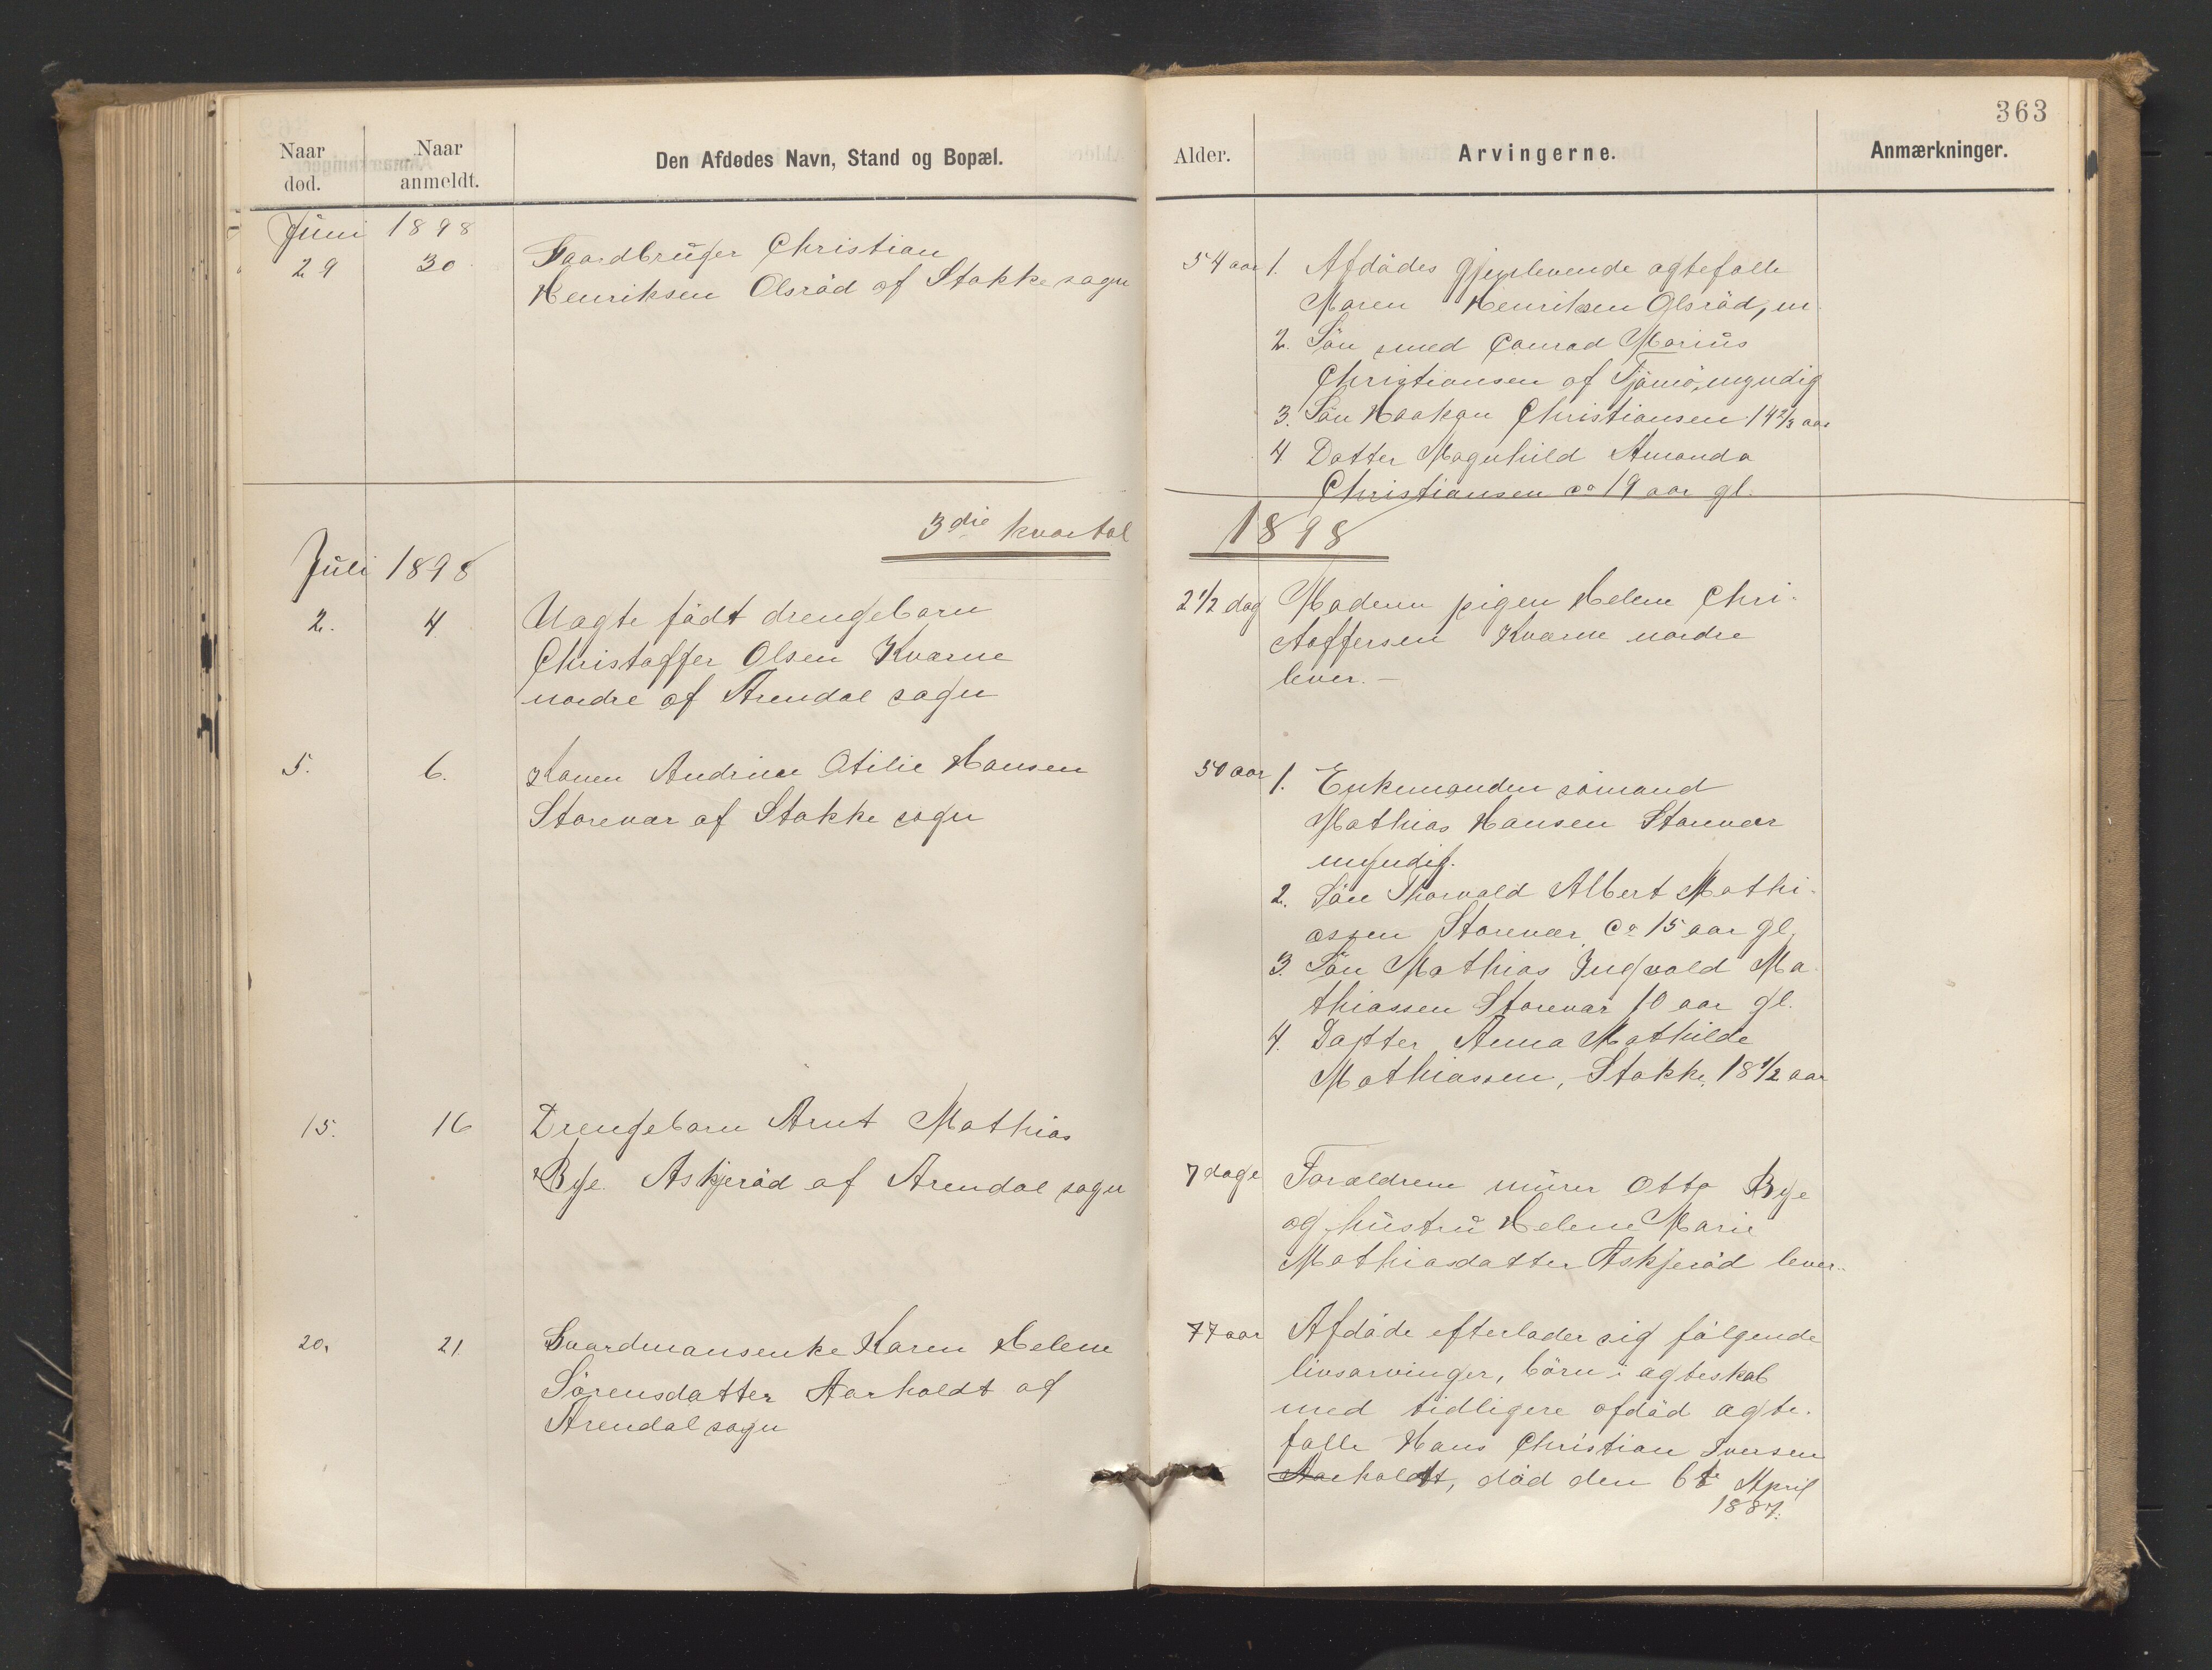 363
Naar død.
Naar anmeldt.
Den Afdødes Navn, Stand og Bopæl.
Alder.
Arvingerne.
Anmærkninger.
Juni 1898
29
30
Gaardbruger Christian
Henriksen Olsröd af Stokke sogn
54 aar
1. Afdödes gjenlevende ægtefælle
Maren Henriksen Olsröd, m.
2. Sön smed Conrad Marius
Christiansen af Tjömö, myndig
3. Sön Haakon Christiansen 14 2/3 aar
4 Datter Magnhild Amanda
Christiansen ca 19 aar gl.
3die kvartal
1898
Juli 1898
2.
4
Uægte födt drengebarn
Christoffer Olsen Kværne
nordre af Arendal sogn
2 1/2 dag
Moderen pigen Helene Chri-
stoffersen Kværne nordre
lever. –
5.
6.
Karen Andrine Otilie Hansen
Storevar af Stokke sogn
50 aar
1. Enkemanden sömand
Mathias Hansen Storevar
myndig.
2. Sön Thorvald Albert Mathi-
assen Storevar ca 15 aar gl.
3. Sön Mathias Ingvald Ma-
thiassen Storevar 10 aar gl.
4. Datter Anna Mathilde
Mathiassen, Stokke, 18 1/2 aar
15.
16
Drengebarn Arnt Mathias
Bye Askjeröd af Arendal sogn
7 dage
Forældrene murer Otto Bye
og hustru Helene Marie
Mathiasdatter Askjeröd lever.
20.
21.
Gaardmansenke Karen Helene
Sörensdatter Aarholdt af
Arendal sogn
77 aar
Afdöde efterlader sig fölgende
livsarvinger, börn i ægteskab
med tidligere afdöd ægte-
fælle Hans Christian Iversen
Aarholdt, död den 6te April
1887.